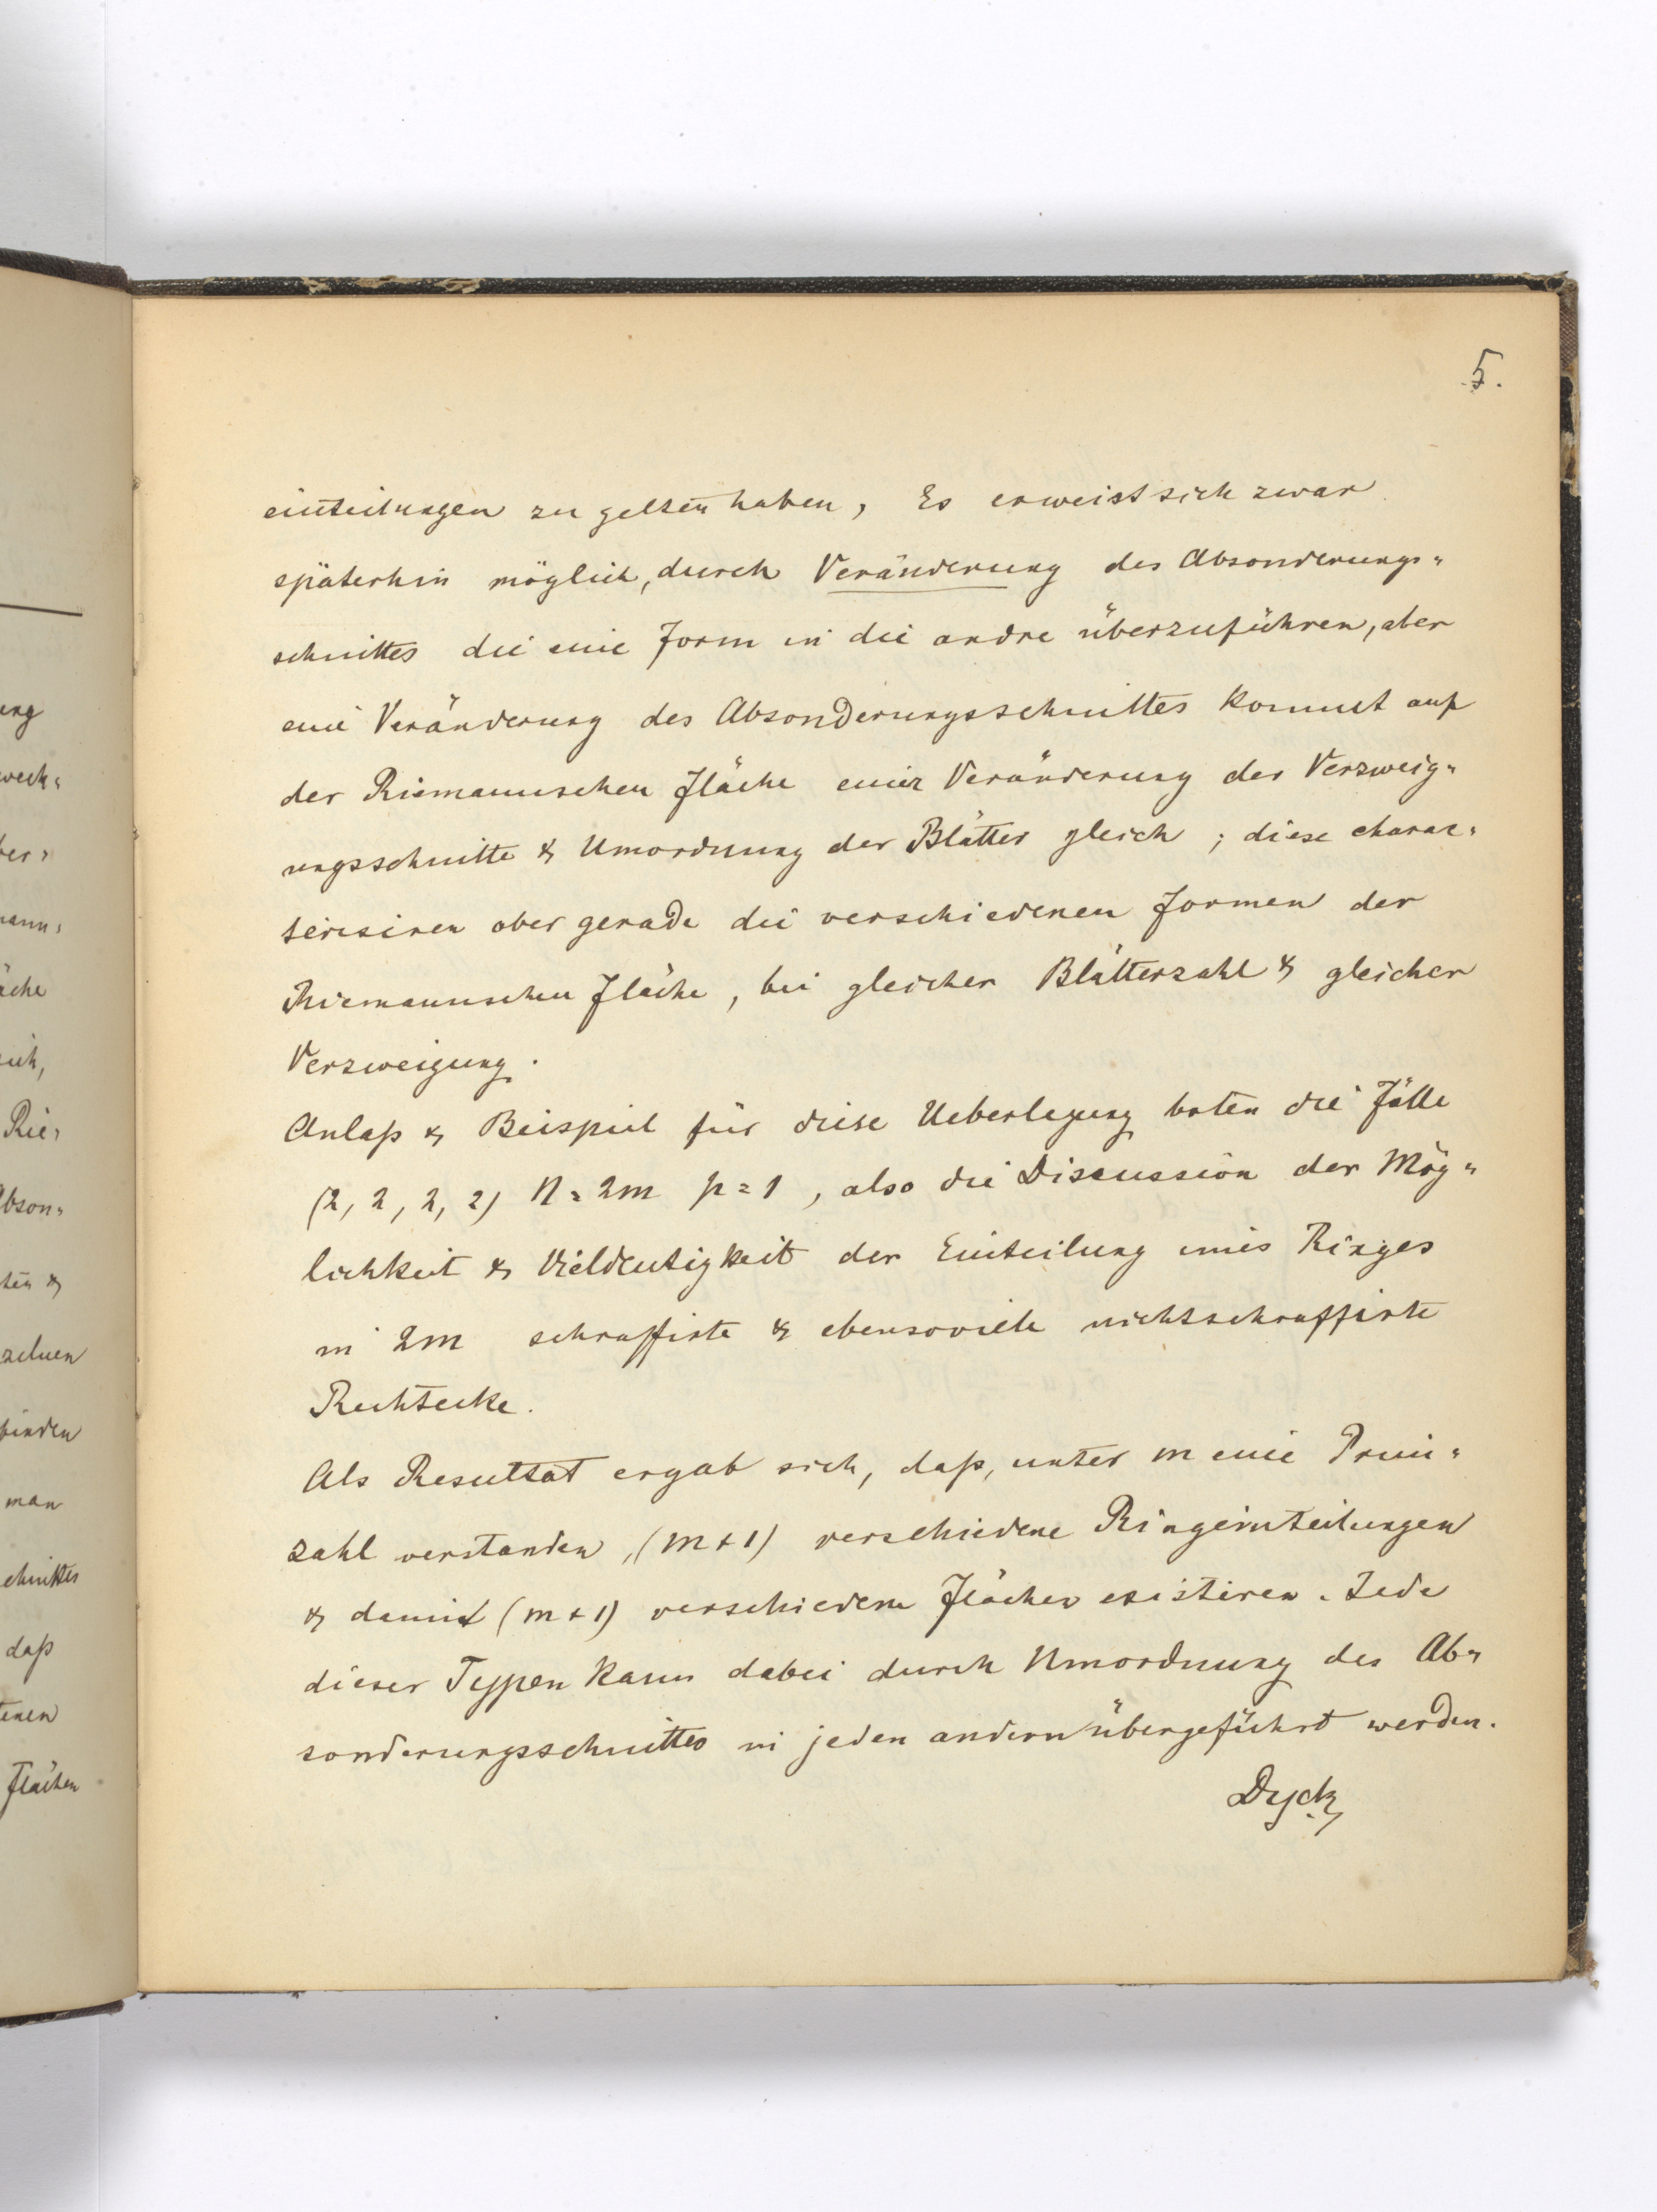 5.
ung
weck=
ber=
mann=
äche
sich,
Rie=
Abson=
ten &
zelnen
finden
man
schnittes
daß
tenen
Flächen
einteilungen zu gelten haben, Es erweist sich zwar
späterhin möglich, durch Veränderung des Absonderungs=
schnittes die eine Form in die andre überzuführen, aber
eine Veränderung des Absonderungsschnittes kommt auf
der Riemannschen Fläche einer Veränderung der Verzweig=
ungsschnitte & Umordnung der Blätter gleich; diese charac=
terisiren aber gerade die verschiedenen Formen der
Riemannschen Fläche, bei gleicher Blätterzahl & gleicher
Verzweigung.
Anlaß & Beispiel für diese Ueberlegung boten die Fälle
(2, 2, 2, 2) N = 2m p = 1, also die Discussion der Mög=
lichkeit & Vieldeutigkeit der Einteilung eines Ringes
in 2m schraffirte & ebensoviele nichtschraffirte
Rechtecke.
Als Resultat ergab sich, daß, unter m eine Prim=
zahl verstanden, (m+1) verschiedene Ringeinteilungen
& damit (m+1) verschiedene Flächen existiren. Jede
dieser Typen kann dabei durch Umordnung des Ab=
sonderungsschnittes in jeden andern übergeführt werden.
Dyck